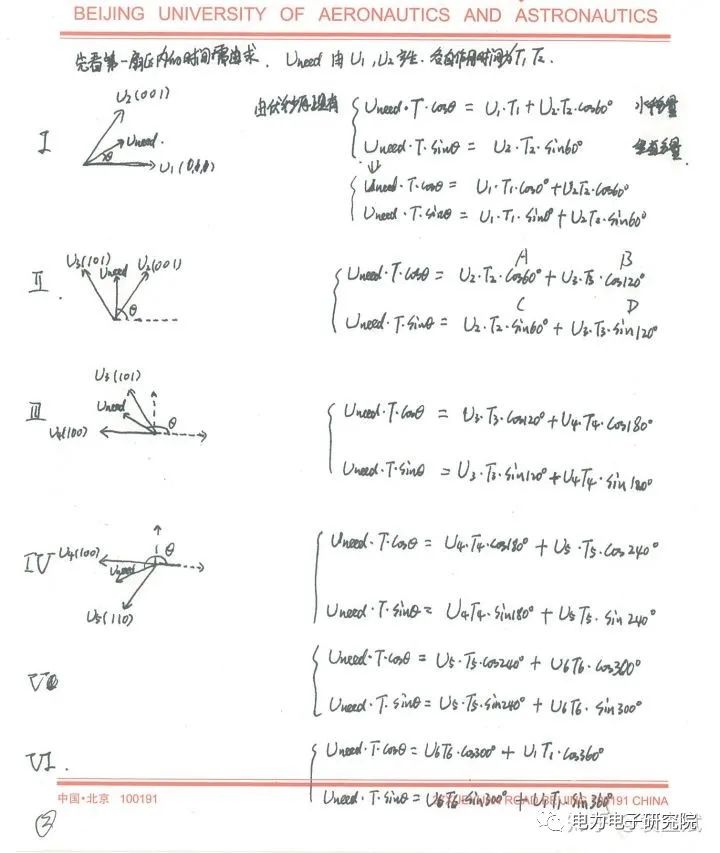 BEIJING UNIVERSITY OF AERONAUTICS AND ASTRONAUTICS
先看第一扇区内的时间需求. Uneed 由 U1, U2 产生. 各自作用时间为 T1 T2.
I
U2(001)
Uneed.
θ
U1
由伏秒原理有
Uneed·T·cosθ = U1·T1 + U2·T2·cos60° 水平分量
Uneed·T·sinθ = U2·T2·sin60° 垂直分量
Uneed·T·cosθ = U1·T1·cos0° + U2T2·cos60°
Uneed·T·sinθ = U1·T1·sin0° + U2T2·sin60°
II.
U3(101)
Uneed
U2(001)
θ
A B
Uneed·T·cosθ = U2·T2·cos60° + U3·T3·cos120°
C D
Uneed·T·sinθ = U2·T2·sin60° + U3·T3·sin120°
III
U3(101)
Uneed
θ
U4(100)
Uneed·T·cosθ = U3·T3·cos120° + U4·T4·cos180°
Uneed·T·sinθ = U3·T3·sin120° + U4T4·sin180°
IV
U4(100)
θ
Uneed
U5(110)
Uneed·T·cosθ = U4·T4·cos180° + U5·T5·cos240°
Uneed·T·sinθ = U4T4·sin180° + U5T5·sin240°
V
Uneed·T·cosθ = U5·T5·cos240° + U6T6·cos300°
Uneed·T·sinθ = U5·T5·sin240° + U6T6·sin300°
VI.
Uneed·T·cosθ = U6T6·cos300° + U1T1·cos360°
Uneed·T·sinθ = U6T6·sin300° + U1T1·sin360°
中国·北京 100191
ROAD BEIJING 100191 CHINA
②
知乎
电力电子研究院